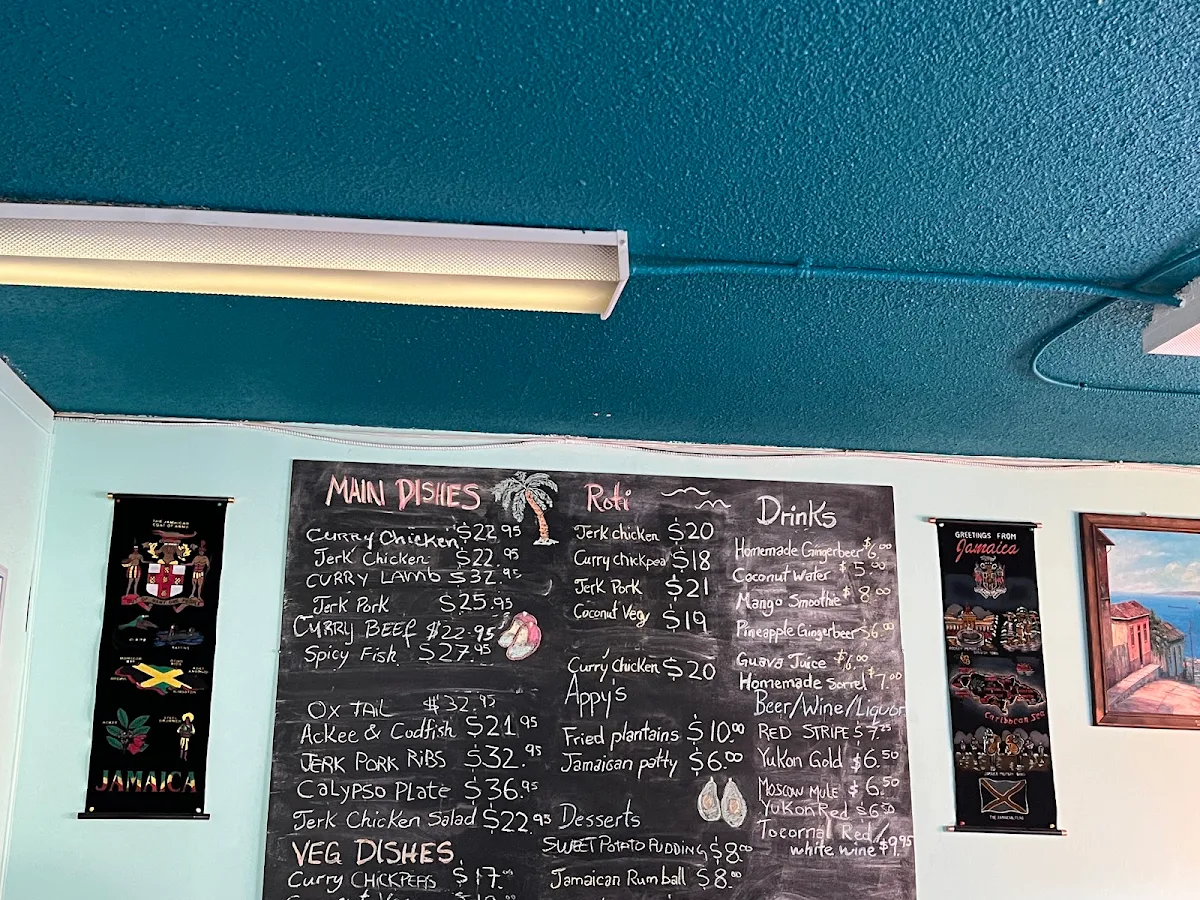 THE JAMAICAN
COAT OF ARMS
JAMAICA
MAIN DISHES
Curry Chicken $22.95
Jerk Chicken $22.95
CURRY LAMB $32.95
Jerk Pork $25.95
CURRY BEEF $22.95
Spicy Fish $27.95
OX TAIL $32.95
Ackee & Codfish $21.95
JERK PORK RIBS $32.95
Calypso Plate $36.95
Jerk Chicken Salad $22.95
VEG DISHES
Curry CHICKPEAS $17.00
Roti
Jerk chicken $20
Curry chickpea $18
Jerk Pork $21
Coconut Vegy $19
Curry Chicken $20
Appy's
Fried plantains $10.00
Jamaican patty $6.00
Desserts
SWEET POTATO PUDDING $8.00
Jamaican Rum ball $8.00
Drinks
Homemade Gingerbeer $6.00
Coconut Water $5.00
Mango Smoothie $8.00
Pineapple Gingerbeer $6.00
Guava Juice $6.00
Homemade Sorrel $7.00
Beer/Wine/Liquor
RED STRIPE $7.25
Yukon Gold $6.50
Moscow Mule $6.50
Yukon Red $6.50
Tocornal Red/
white wine $9.95
GREETINGS FROM
Jamaica
Caribbean Sea